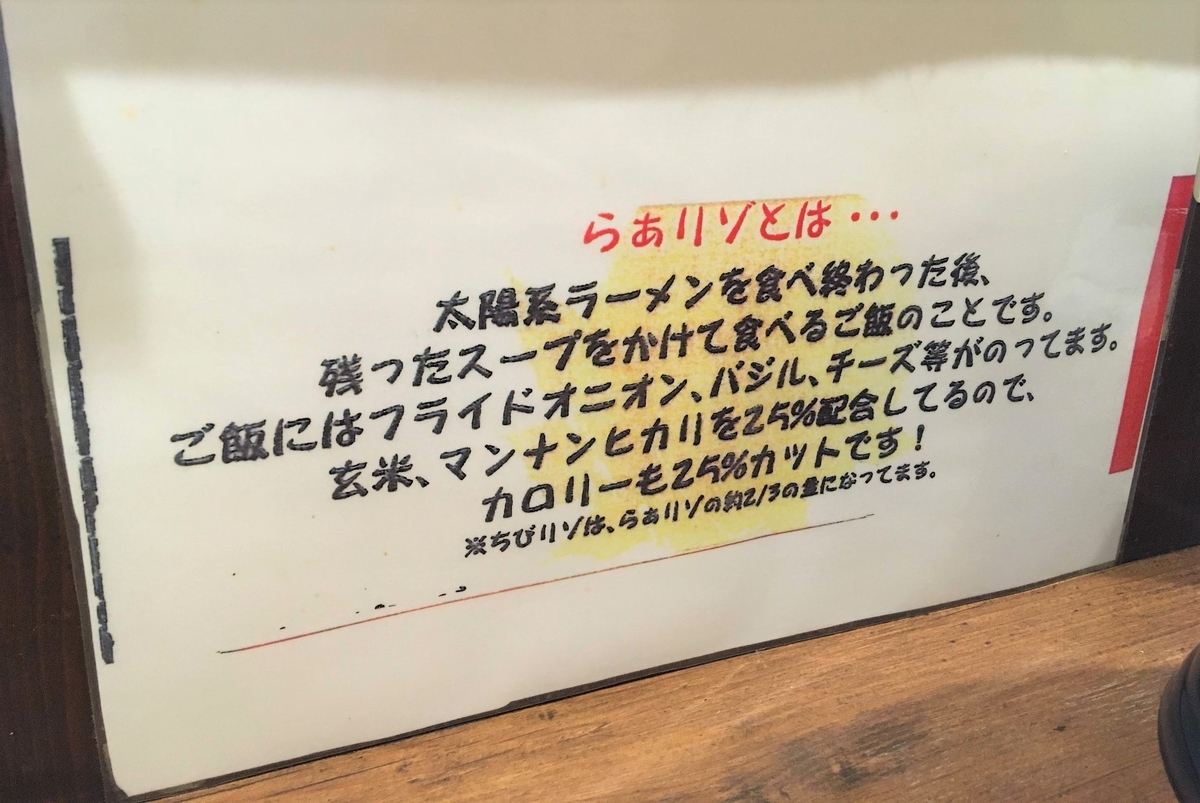 らぁリゾとは…
太陽系ラーメンを食べ終わった後、
残ったスープをかけて食べるご飯のことです。
ご飯にはフライドオニオン、バジル、チーズ等がのってます。
玄米、マンナンヒカリを25%配合してるので、
カロリーも25%カットです！
※ちびリゾは、らぁリゾの約2/3の量になってます。